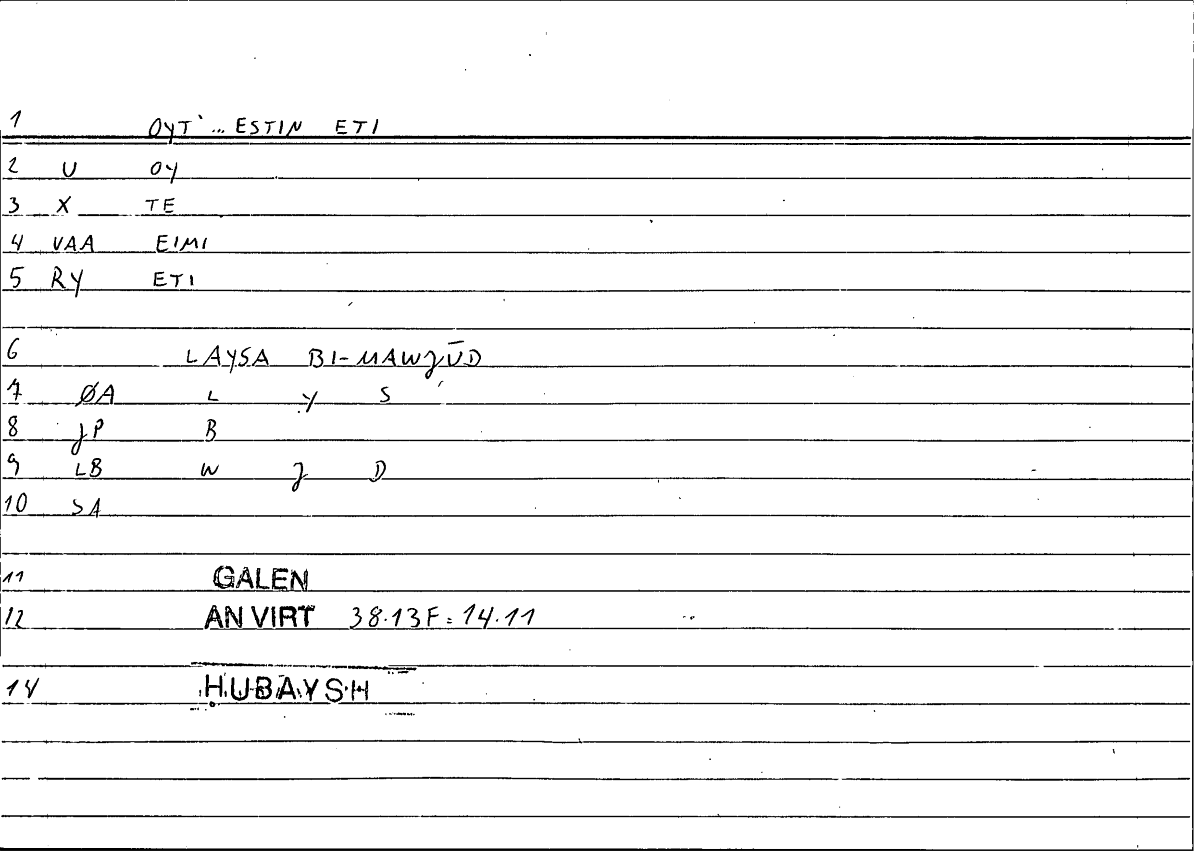 1 OYT' ... ESTIN ETI
2 U OY
3 X TE
4 VAA EIMI
5 RY ETI
6 LAYSA BI-MAWJŪD
7 ØA L Y S
8 JP B
9 LB W J D
10 SA
11 GALEN
12 AN VIRT 38.13F = 14.11
14 ḤUBAYSH